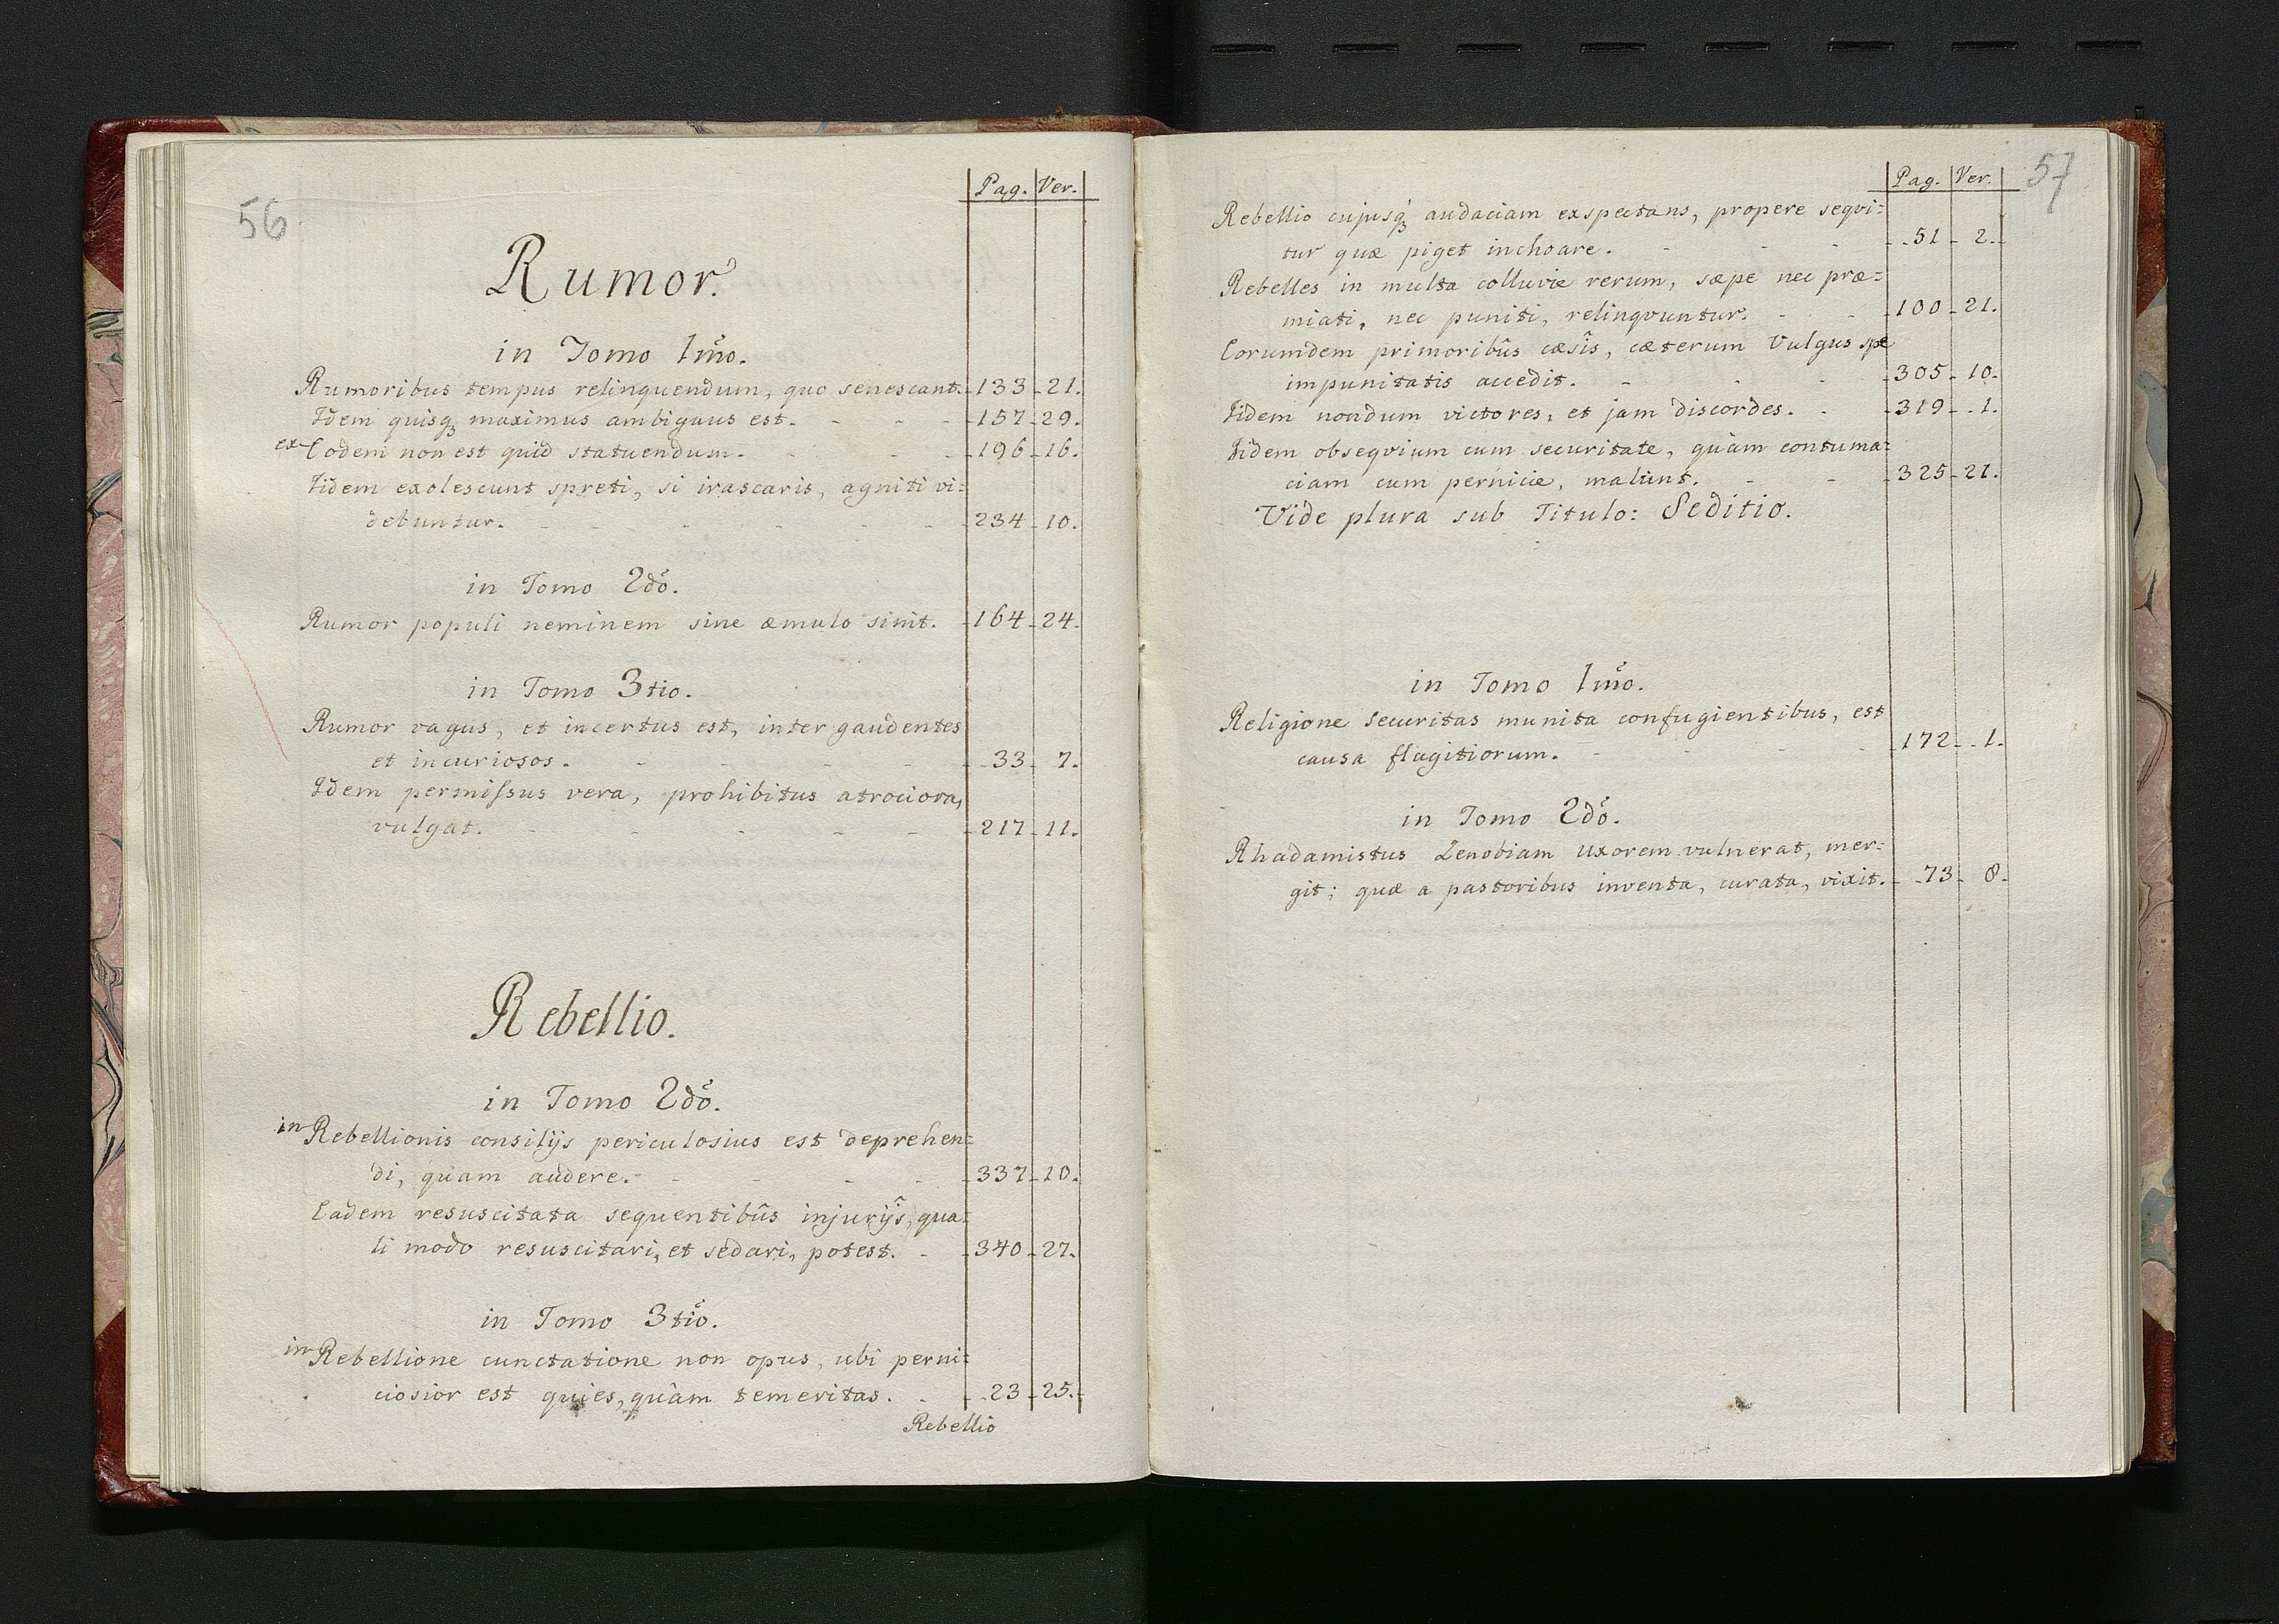 56
Pag. Ver.
Rumor.
in Tomo 1mo.
Rumoribus tempus relinquendum, quo senescant. 133 21.
Idem quisq₃ maximus ambiguus est. - - - 157 29.
ex Eodem non est quid statuendum. - - - 196 16.
Iidem exolescunt spreti, si irascaris, agniti vi=
debuntur. - - - - - - 234 10.
in Tomo 2do.
Rumor populi neminem sine æmulo sinit. 164 24.
in Tomo 3tio.
Rumor vagus, et incertus est, inter gaudentes
et incuriosos. - - - - - 33 7.
Idem permissus vera, prohibitus atrociora,
vulgat. - - - - - 217 11.
Rebellio.
in Tomo 2do.
in Rebellionis consilijs periculosius est deprehen=
di, quam audere. - - - - 337 10.
Eadem resuscitata sequentibûs injurijs, qua=
li modo resuscitari, et sedari, potest. - 340 27.
in Tomo 3tio.
in Rebellione cunctatione non opus, ubi perni=
ciosior est quies, quàm temeritas. - 23 25.
Rebellio
57
Pag. Ver.
Rebellio cujusq₃ audaciam exspectans, propere seqvi=
tur quæ piget inchoare. - - - 51 2.
Rebelles in multa colluvie rerum, sæpe nec præ=
miati, nec puniti, relinqvuntur. - - 100 21.
Eorumdem primoribûs cæsîs, cæterum Vulgus spe
impunitatis accedit. - - - 305 10.
Iidem nondum victores, et jam discordes. - 319 1.
Iidem obseqvium cum securitate, quàm contuma=
ciam cum pernicie, malunt. - - 325 21.
Vide plura sub Titulo: Seditio.
in Tomo 1mo.
Religione securitas munita confugientibus, est
causa flagitiorum. - - - - 172 1.
in Tomo 2do.
Rhadamistus Zenobiam uxorem vulnerat, mer=
git; quæ a pastoribus inventa, curata, vixit. 73 8.